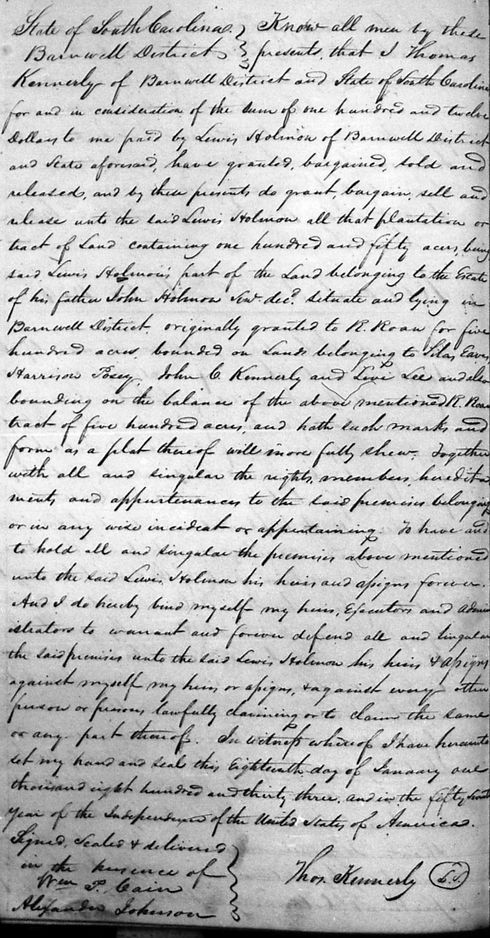 State of South Carolina. } Know all men by these
Barnwell District } presents, that I Thomas
Kennerly of Barnwell District and State of South Carolina
for and in consideration of the sum of one hundred and twelve
Dollars to me paid by Lewis Holmon of Barnwell District
and State aforesaid, have granted, bargained, sold and
released, and by these presents do grant, bargain, sell and
release unto the said Lewis Holmon all that plantation or
tract of Land containing one hundred and fifty acres, being
said Lewis Holmon's part of the Land belonging to the Estate
of his father John Holmon Senr. decd. situate and lying in
Barnwell District, originally granted to R. Roan for five
hundred acres, bounded on Lands belonging to Silas Eaves
Harrison Posey, John C. Kennerly and Levi Lee and also
bounding on the balance of the above mentioned R. Roan
tract of five hundred acres, and hath such marks and
form as a plat thereof will more fully shew. Together
with all and singular the rights, members, heredita
ments and appurtenances to the said premises belonging
or in any wise incident or appertaining: To have and
to hold all and singular the premises above mentioned
unto the said Lewis Holmon his heirs and assigns forever.
And I do hereby bind myself my heirs, Executors and admin
istrators to warrant and forever defend all and singular
the said premises unto the said Lewis Holmon his heirs & assigns
against myself my heirs or assigns, & against every other
person or persons lawfully claiming or to claim the same
or any part thereof. In witness whereof I have hereunto
set my hand and seal this Eighteenth day of January one
thousand eight hundred and thirty three, and in the fifty
year of the Independence of the United States of America.
Signed, Sealed & delivered }
in the presence of }
Wm P. Cain } Thos. Kennerly L.S.
Alexander Johnson }